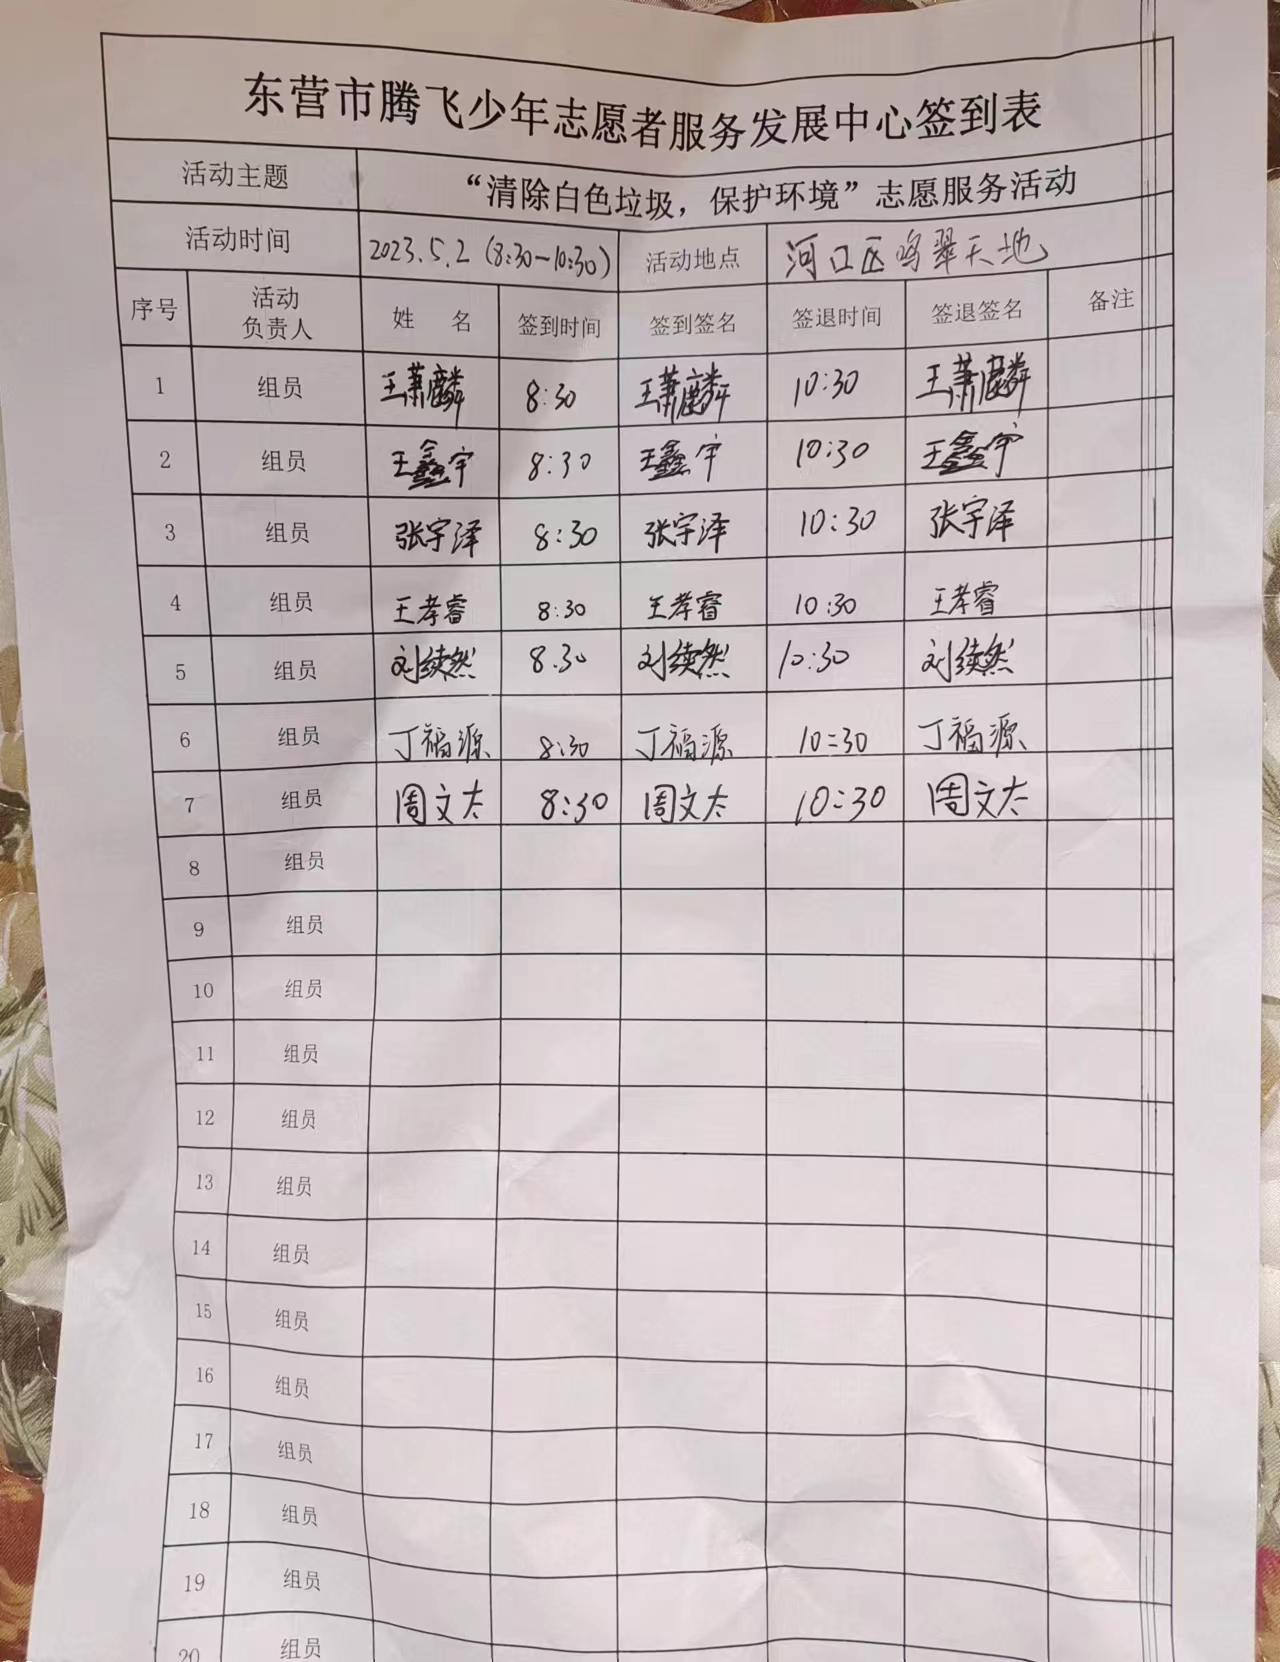 东营市腾飞少年志愿者服务发展中心签到表
活动主题 “清除白色垃圾，保护环境”志愿服务活动
活动时间 2023.5.2 (8:30-10:30) 活动地点 河口区鸣翠天地
序号 活动负责人 姓 名 签到时间 签到签名 签退时间 签退签名 备注
1 组员 王萧麟 8:30 王萧麟 10:30 王萧麟
2 组员 王鑫宇 8:30 王鑫宇 10:30 王鑫宇
3 组员 张宇泽 8:30 张宇泽 10:30 张宇泽
4 组员 王孝睿 8:30 王孝睿 10:30 王孝睿
5 组员 刘续然 8.30 刘续然 10:30 刘续然
6 组员 丁福源 8:30 丁福源 10:30 丁福源
7 组员 周文太 8:30 周文太 10:30 周文太
8 组员
9 组员
10 组员
11 组员
12 组员
13 组员
14 组员
15 组员
16 组员
17 组员
18 组员
19 组员
20 组员